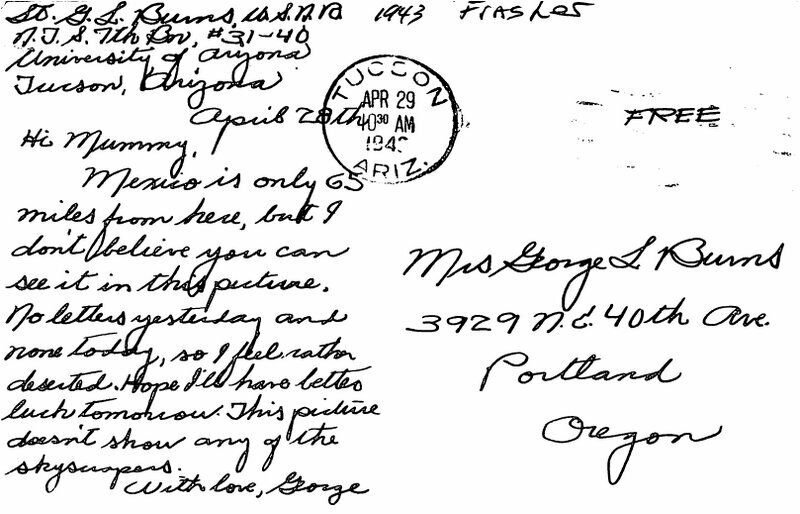 St. G. L. Burns, U.S.N.R. 1943
N.T.S. 7th Bn., #31-40
University of Arizona
Tucson, Arizona
April 28th
Hi Mummy,
Mexico is only 65
miles from here, but I
don't believe you can
see it in this picture.
No letters yesterday and
none today, so I feel rather
deserted. Hope I'll have better
luck tomorrow. This picture
doesn't show any of the
skyscrapers.
With love, George
TUCSON
APR 29
10 30 AM
ARIZ.
FREE
Mrs George L Burns
3929 N.E. 40th Ave.
Portland
Oregon